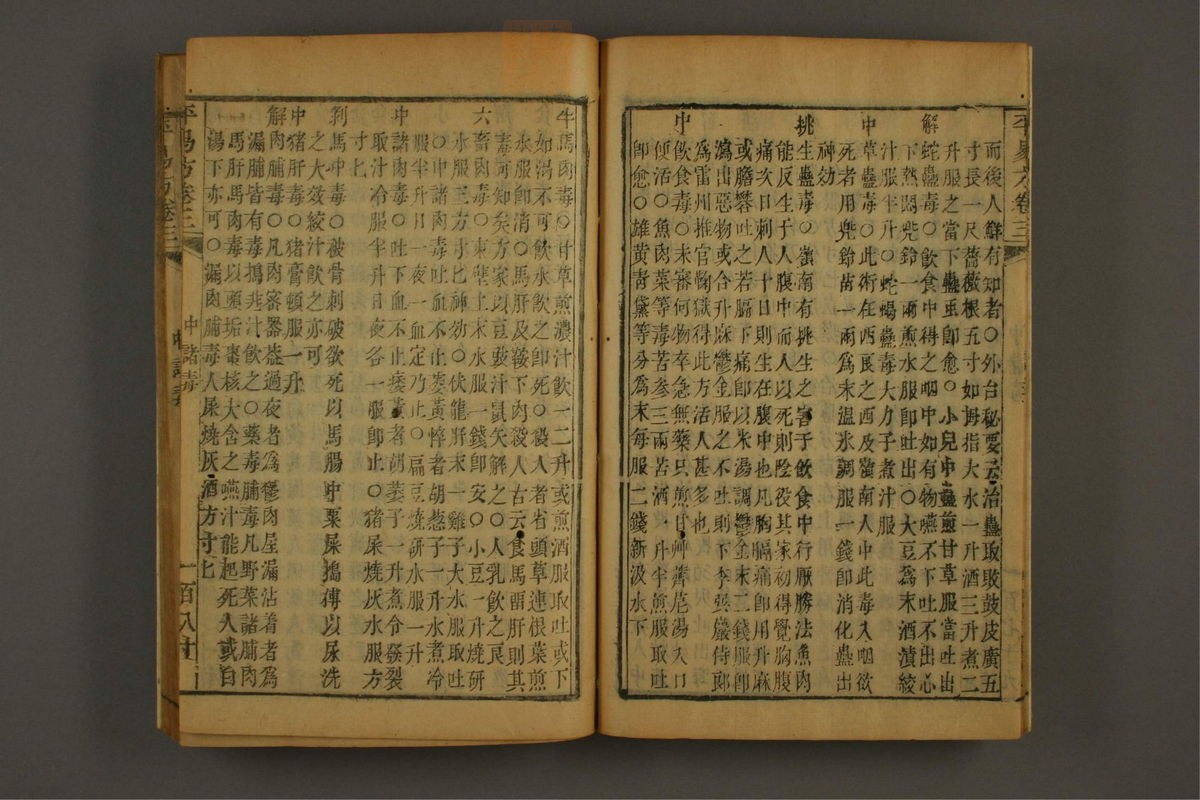 而後人鮮有知者○外台秘要云治蠱取敗鼓皮廣五
寸長一尺薔薇根五寸如拇指大水一升酒三升煮二
升服之當下蠱虫即愈○小兒中蠱煎甘草服當吐出
解蛇蠱毒○飲食中得之咽中如有物嚥不下吐不出心
下熱悶兠鈴一兩煎水服即吐出○大豆為末酒漬絞
汁服半升○蛇蝎蠱毒大力子煮汁服
中草蠱毒○此術在西良之西及嶺南人中此毒入咽欲
死者用兠鈴苗一兩為末温水調服一錢即消化蠱出
神効
挑生蠱毒○嶺南有挑生之害于飲食中行厭勝法魚肉
能反生于人腹中而人以死則陰役其家初得覺胸腹
痛次日刺人十日則生在腹中也凡胸膈痛即用升麻
或膽礬吐之若膈下痛即以米湯調鬱金末二錢服即
瀉出惡物或合升麻鬱金服之不吐則下李巽巖侍郎
為雷州推官鞠獄得此方活人甚多也
中飲食毒○未審何物卒急無藥只煎甘艸薺苨湯入口
便活○魚肉菜等毒苦参三兩苦酒一升半煎服取吐
即愈○雄黄青黛等分為末每服二錢新汲水下
牛馬肉毒○甘草煎濃汁飲一二升或煎酒服取吐或下
如渴不可飲水飲之即死○殺人者省頭草連根葉煎
水服即消○馬肝及鞍下肉殺人古云食馬畱肝則其
毒可知矣方家以豆豉汁鼠矢解之○人乳飲之良
六畜肉毒○東壁土末水服一錢即安○小豆一升燒研
水服三方寸匕神効○伏龍肝末一雞子大水服取吐
○中諸肉毒吐血不止萎黄悴者胡葱子一升水煮冷
服半升日一夜一血定乃止○扁豆燒研水服一升
中諸肉毒○吐下血不止痿黄者葫荽子一升煮令發裂
取汁冷服半升日夜各一服即止○猪屎燒灰水服方
寸匕
剥馬中毒○被骨刺破欲死以馬腸中粟屎搗傅以尿洗
之大效絞汁飲之亦可
中猪肝毒○猪膏頓服一升
解肉脯毒○凡肉密器蓋過夜者為鬱肉屋漏沾着者為
漏脯皆有毒搗韭汁飲之○藥毒脯毒凡野菜諸脯肉
馬肝馬肉毒以頭垢棗核大含之嚥汁能起死人或白
湯下亦可○漏肉脯毒人屎燒灰酒方寸匕
平易方卷三
平易方卷三
中諸毒
一百八十